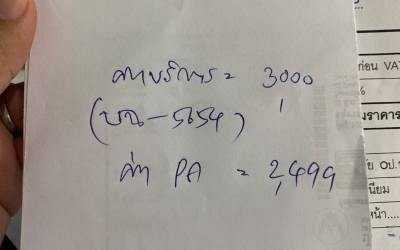 ค่าบริการ = 3000
(บวก - 5654)
ค่า PA = 2,499
ก่อน VA
6
มราคาร
นิยม
หน้า....